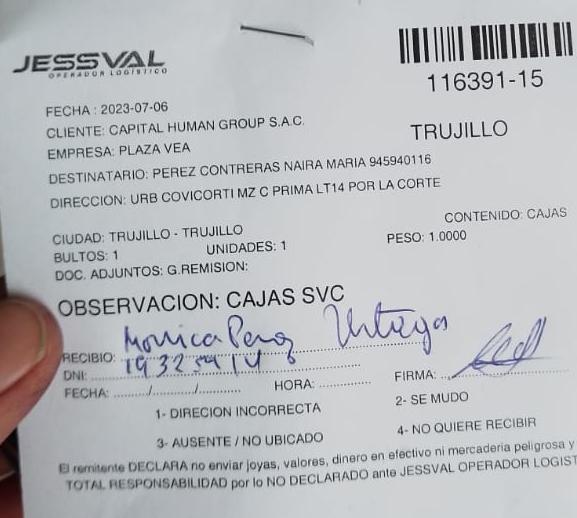 JESSVAL
OPERADOR LOGÍSTICO
116391-15
TRUJILLO
FECHA : 2023-07-06
CLIENTE: CAPITAL HUMAN GROUP S.A.C.
EMPRESA: PLAZA VEA
DESTINATARIO: PEREZ CONTRERAS NAIRA MARIA 945940116
DIRECCION: URB COVICORTI MZ C PRIMA LT14 POR LA CORTE
CONTENIDO: CAJAS
CIUDAD: TRUJILLO - TRUJILLO
PESO: 1.0000
BULTOS: 1 UNIDADES: 1
DOC. ADJUNTOS: G.REMISION:
OBSERVACION: CAJAS SVC
RECIBIO: Monica
DNI:
FECHA: ......../......../......... HORA: .............. FIRMA:
1- DIRECION INCORRECTA 2- SE MUDO
3- AUSENTE / NO UBICADO 4- NO QUIERE RECIBIR
El remitente DECLARA no enviar joyas, valores, dinero en efectivo ni mercaderia peligrosa y
TOTAL RESPONSABILIDAD por lo NO DECLARADO ante JESSVAL OPERADOR LOGIST